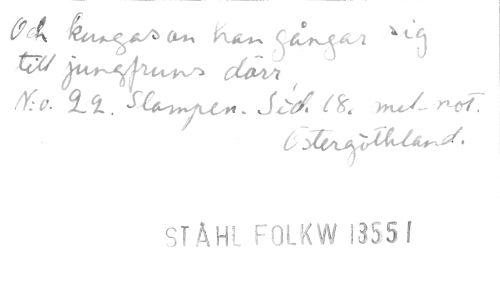 Och kungason han gångar sig
till jungfruns dörr,
N:o. 22. Slampen. Sid. 18. mel-not.
Östergöthland.
STÅHL FOLKW 13551